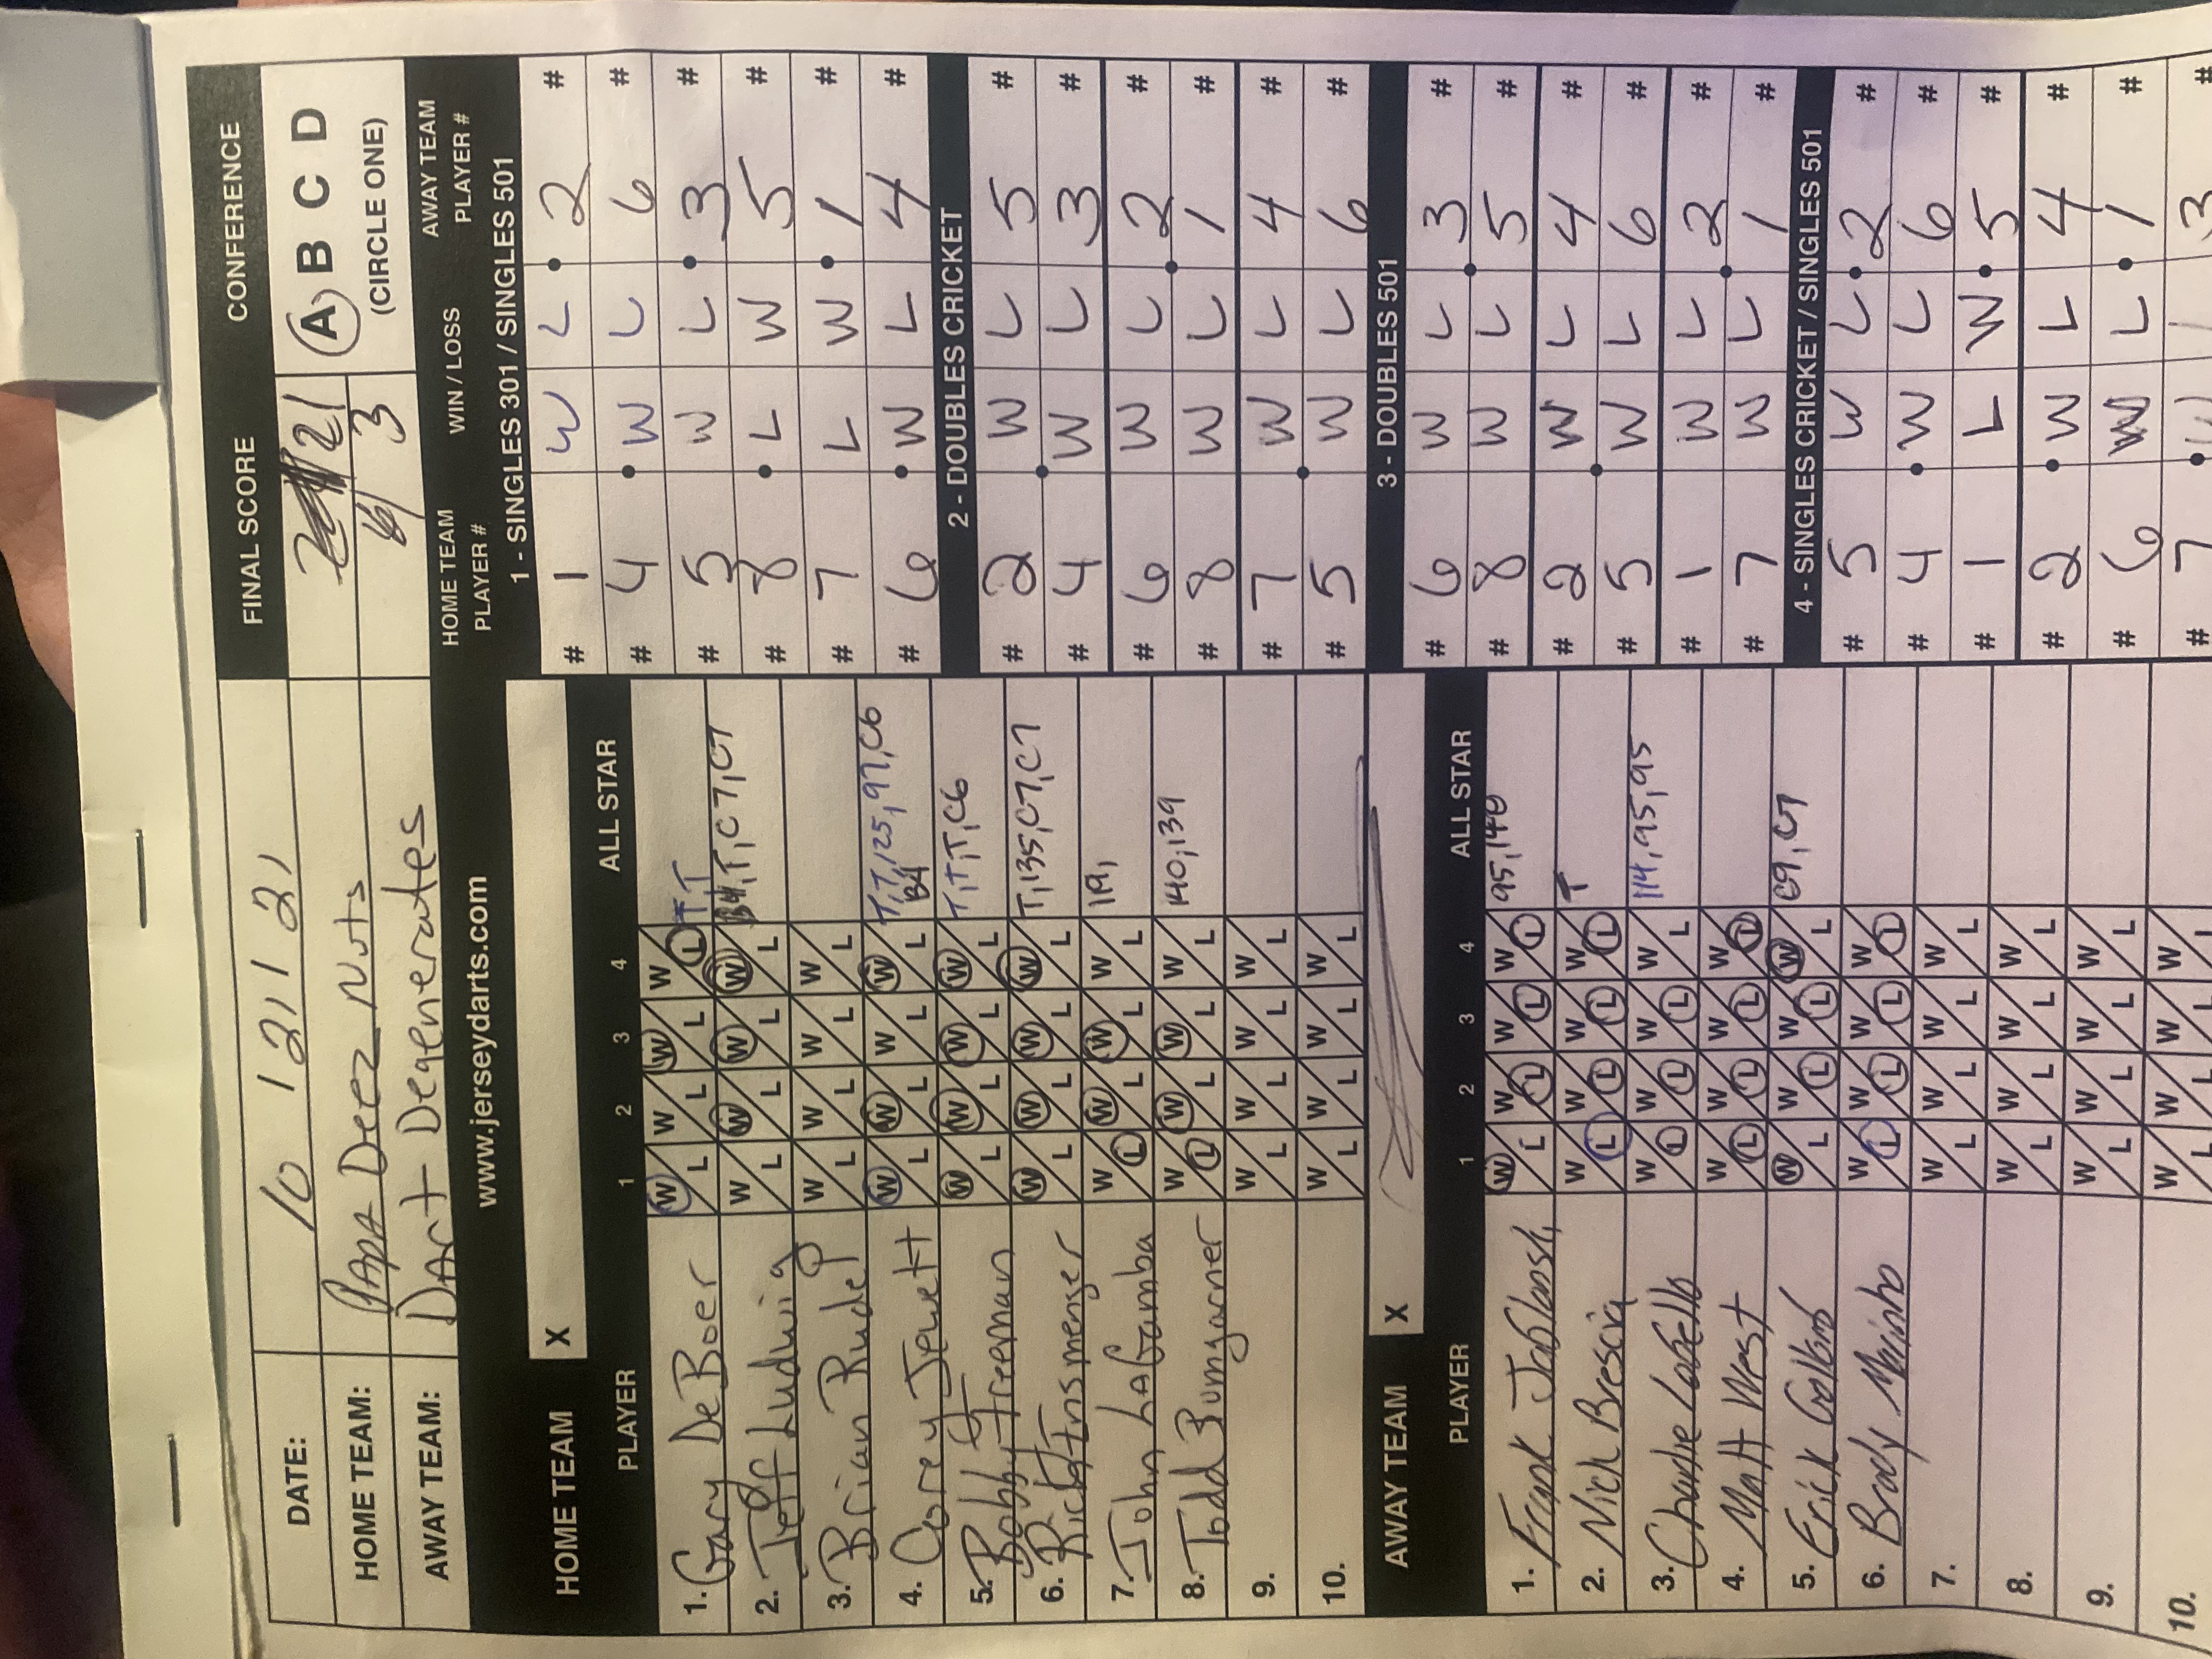 FINAL SCORE CONFERENCE
DATE: 10 / 21 / 21
HOME TEAM: PAPA Deez Nuts 21 A B C D
AWAY TEAM: Dart Degenerates 3 (CIRCLE ONE)
www.jerseydarts.com
HOME TEAM X
PLAYER 1 2 3 4 ALL STAR
1. Gary DeBoer W L W L W L W L T
2. Jeff Ludwig W L W L W L W L T, C7, C7
3. Brian Rudd W L W L W L W L
4. Corey Jewett W L W L W L W L T, T, 125, 97, C6
B4
5. Bobby Freeman W L W L W L W L T, T, T, C6
6. Rich Ensmenger W L W L W L W L T, 135, C7, C7
7. John LAGamba W L W L W L W L 119,
8. Todd Bumgarner W L W L W L W L 140, 139
9. W L W L W L W L
10. W L W L W L W L
AWAY TEAM X
PLAYER 1 2 3 4 ALL STAR
1. Frank W L W L W L W L 95, 140
2. Nick Brescia W L W L W L W L T
3. Charlie W L W L W L W L 114, 95, 95
4. Matt West W L W L W L W L
5. Erick W L W L W L W L C9, C7
6. Brady Marinho W L W L W L W L
7. W L W L W L W L
8. W L W L W L W L
9. W L W L W L W L
10. W L W L W L W L
HOME TEAM PLAYER # WIN / LOSS AWAY TEAM PLAYER #
1 - SINGLES 301 / SINGLES 501
# 1 W L 2 #
# 4 W L 6 #
# 5 W L 3 #
# 8 L W 5 #
# 7 L W 1 #
# 6 W L 4 #
2 - DOUBLES CRICKET
# 2 W L 5 #
# 4 W L 3 #
# 6 W L 2 #
# 8 W L 1 #
# 7 W L 4 #
# 5 W L 6 #
3 - DOUBLES 501
# 6 W L 3 #
# 8 W L 5 #
# 2 W L 4 #
# 5 W L 6 #
# 1 W L 2 #
# 7 W L 1 #
4 - SINGLES CRICKET / SINGLES 501
# 5 W L 2 #
# 4 W L 6 #
# 1 L W 5 #
# 2 W L 4 #
# 6 W L 1 #
# 7 W L 3 #